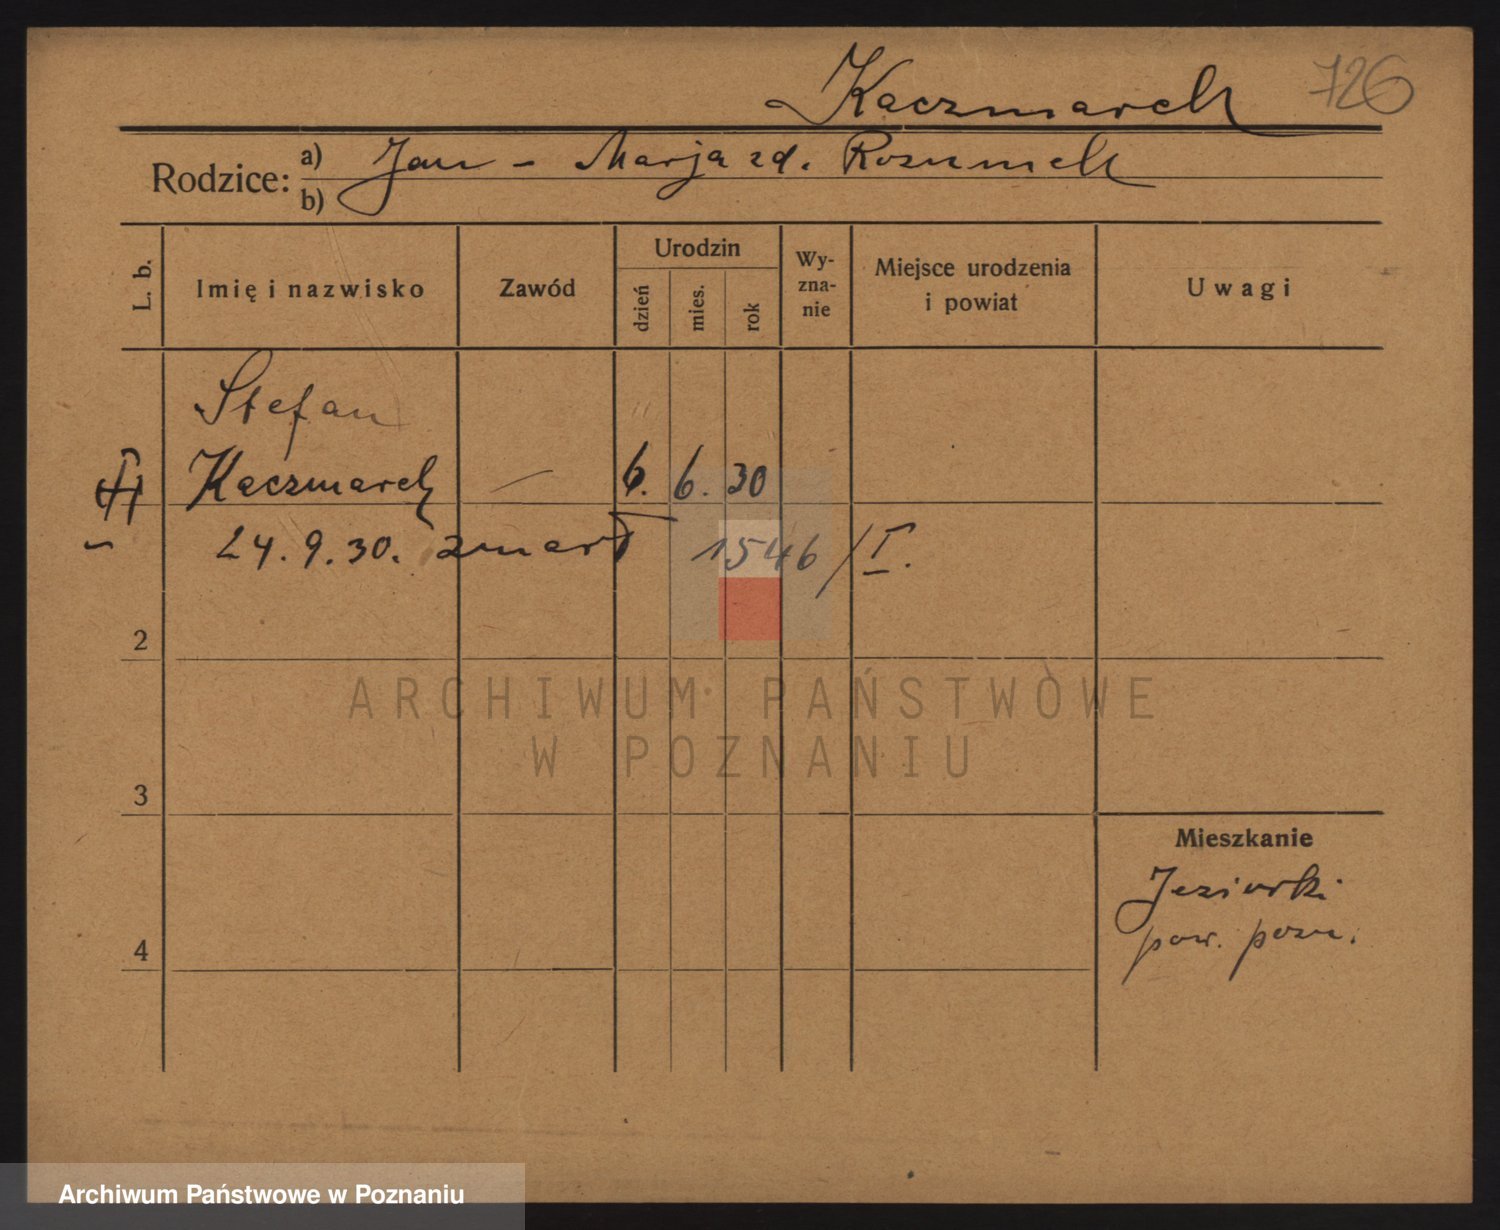 Kaczmarek 726
Rodzice: a) Jan - Marja zd. Rozumek
b)
L. b. Imię i nazwisko Zawód Urodzin dzień mies. rok Wyznanie Miejsce urodzenia i powiat Uwagi
Stefan
Kaczmarek — 6. 6. 30
24. 9. 30. zmarł 1546/I.
2
ARCHIWUM PAŃSTWOWE
W POZNANIU
3
Mieszkanie
Jeziorki
pow. pozn.
4
Archiwum Państwowe w Poznaniu